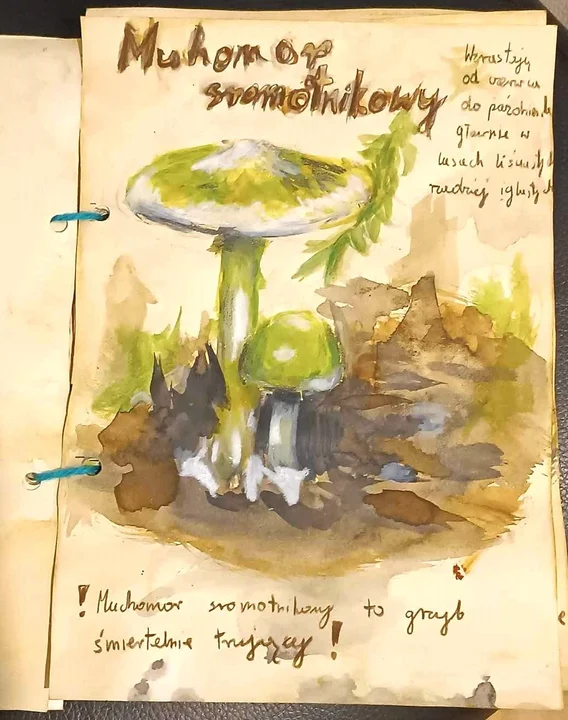 Muchomor
sromotnikowy
Wzrastają
od czerwca
do październ
głównie w
lasach liściastych
rzadziej iglastych
! Muchomor sromotnikowy to grzyb
śmiertelnie trujący !